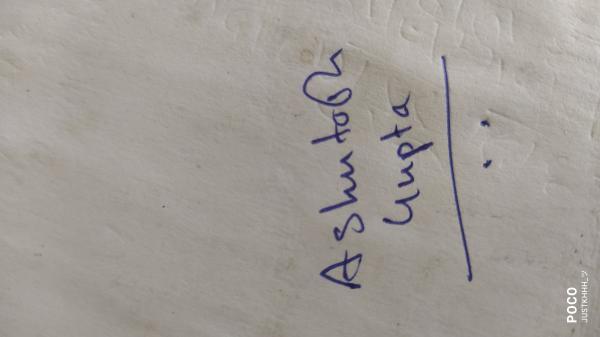 Ashutosh
Gupta
POCO
JUSTKHHH_ツ